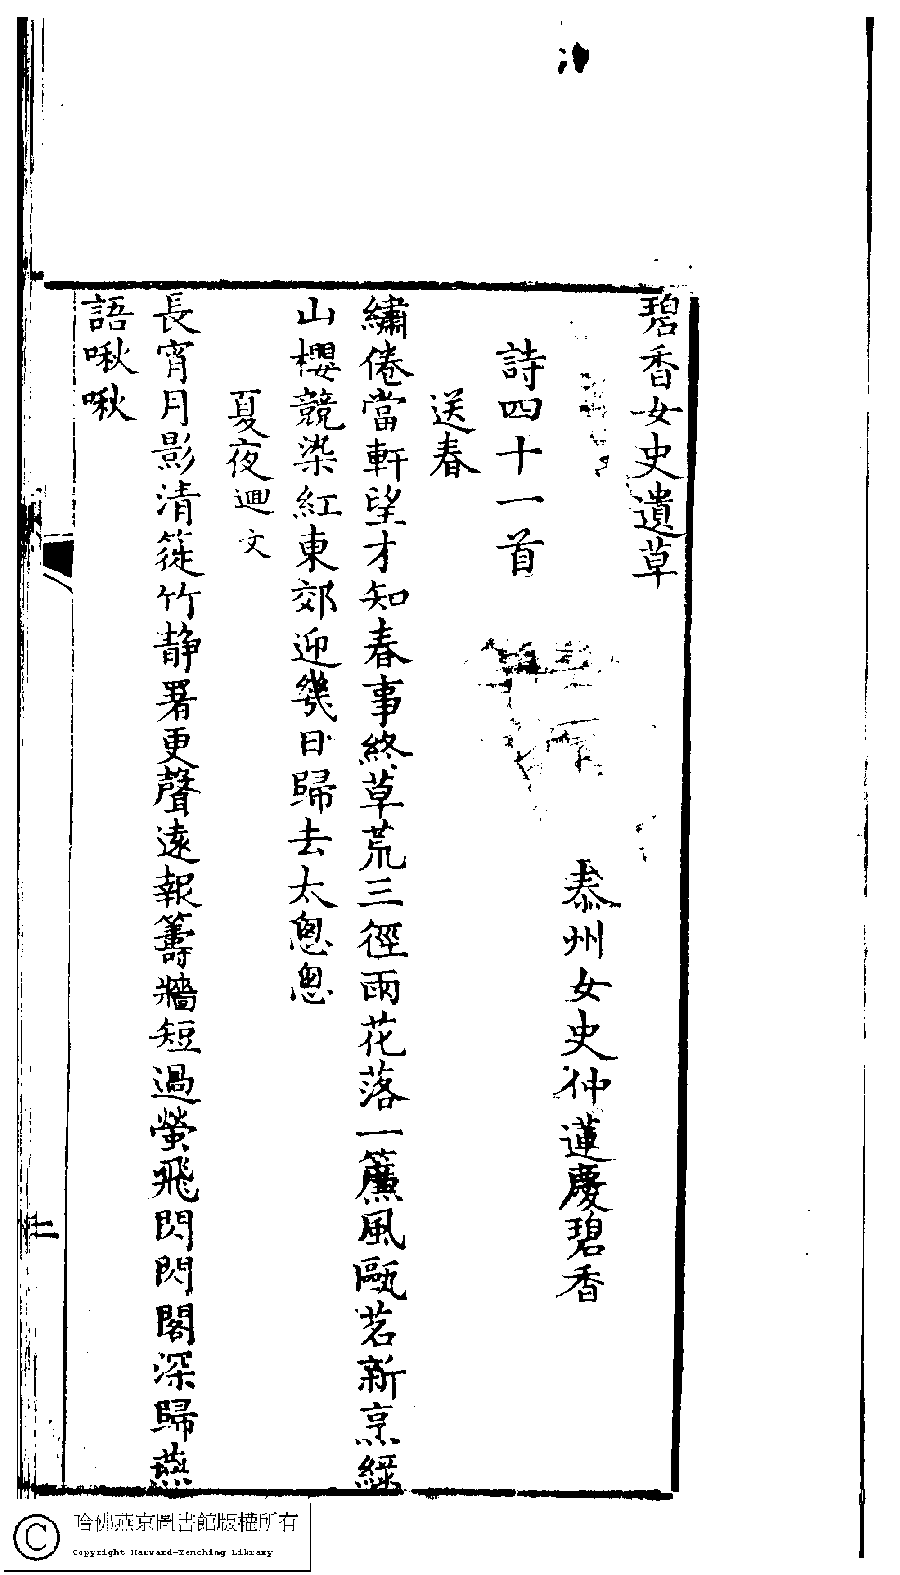 碧香女史遺草
泰州女史仲蓮慶碧香
詩四十一首
送春
繡倦當軒望才知春事終草荒三徑雨花落一簾風甌茗新烹綠
山櫻競染紅東郊迎幾日歸去太悤悤
夏夜迴文
長宵月影清簁竹靜署更聲遠報籌牆短過螢飛閃閃閣深歸燕
語啾啾
二
哈佛燕京圖書館版權所有
Copyright Harvard-Yenching Library